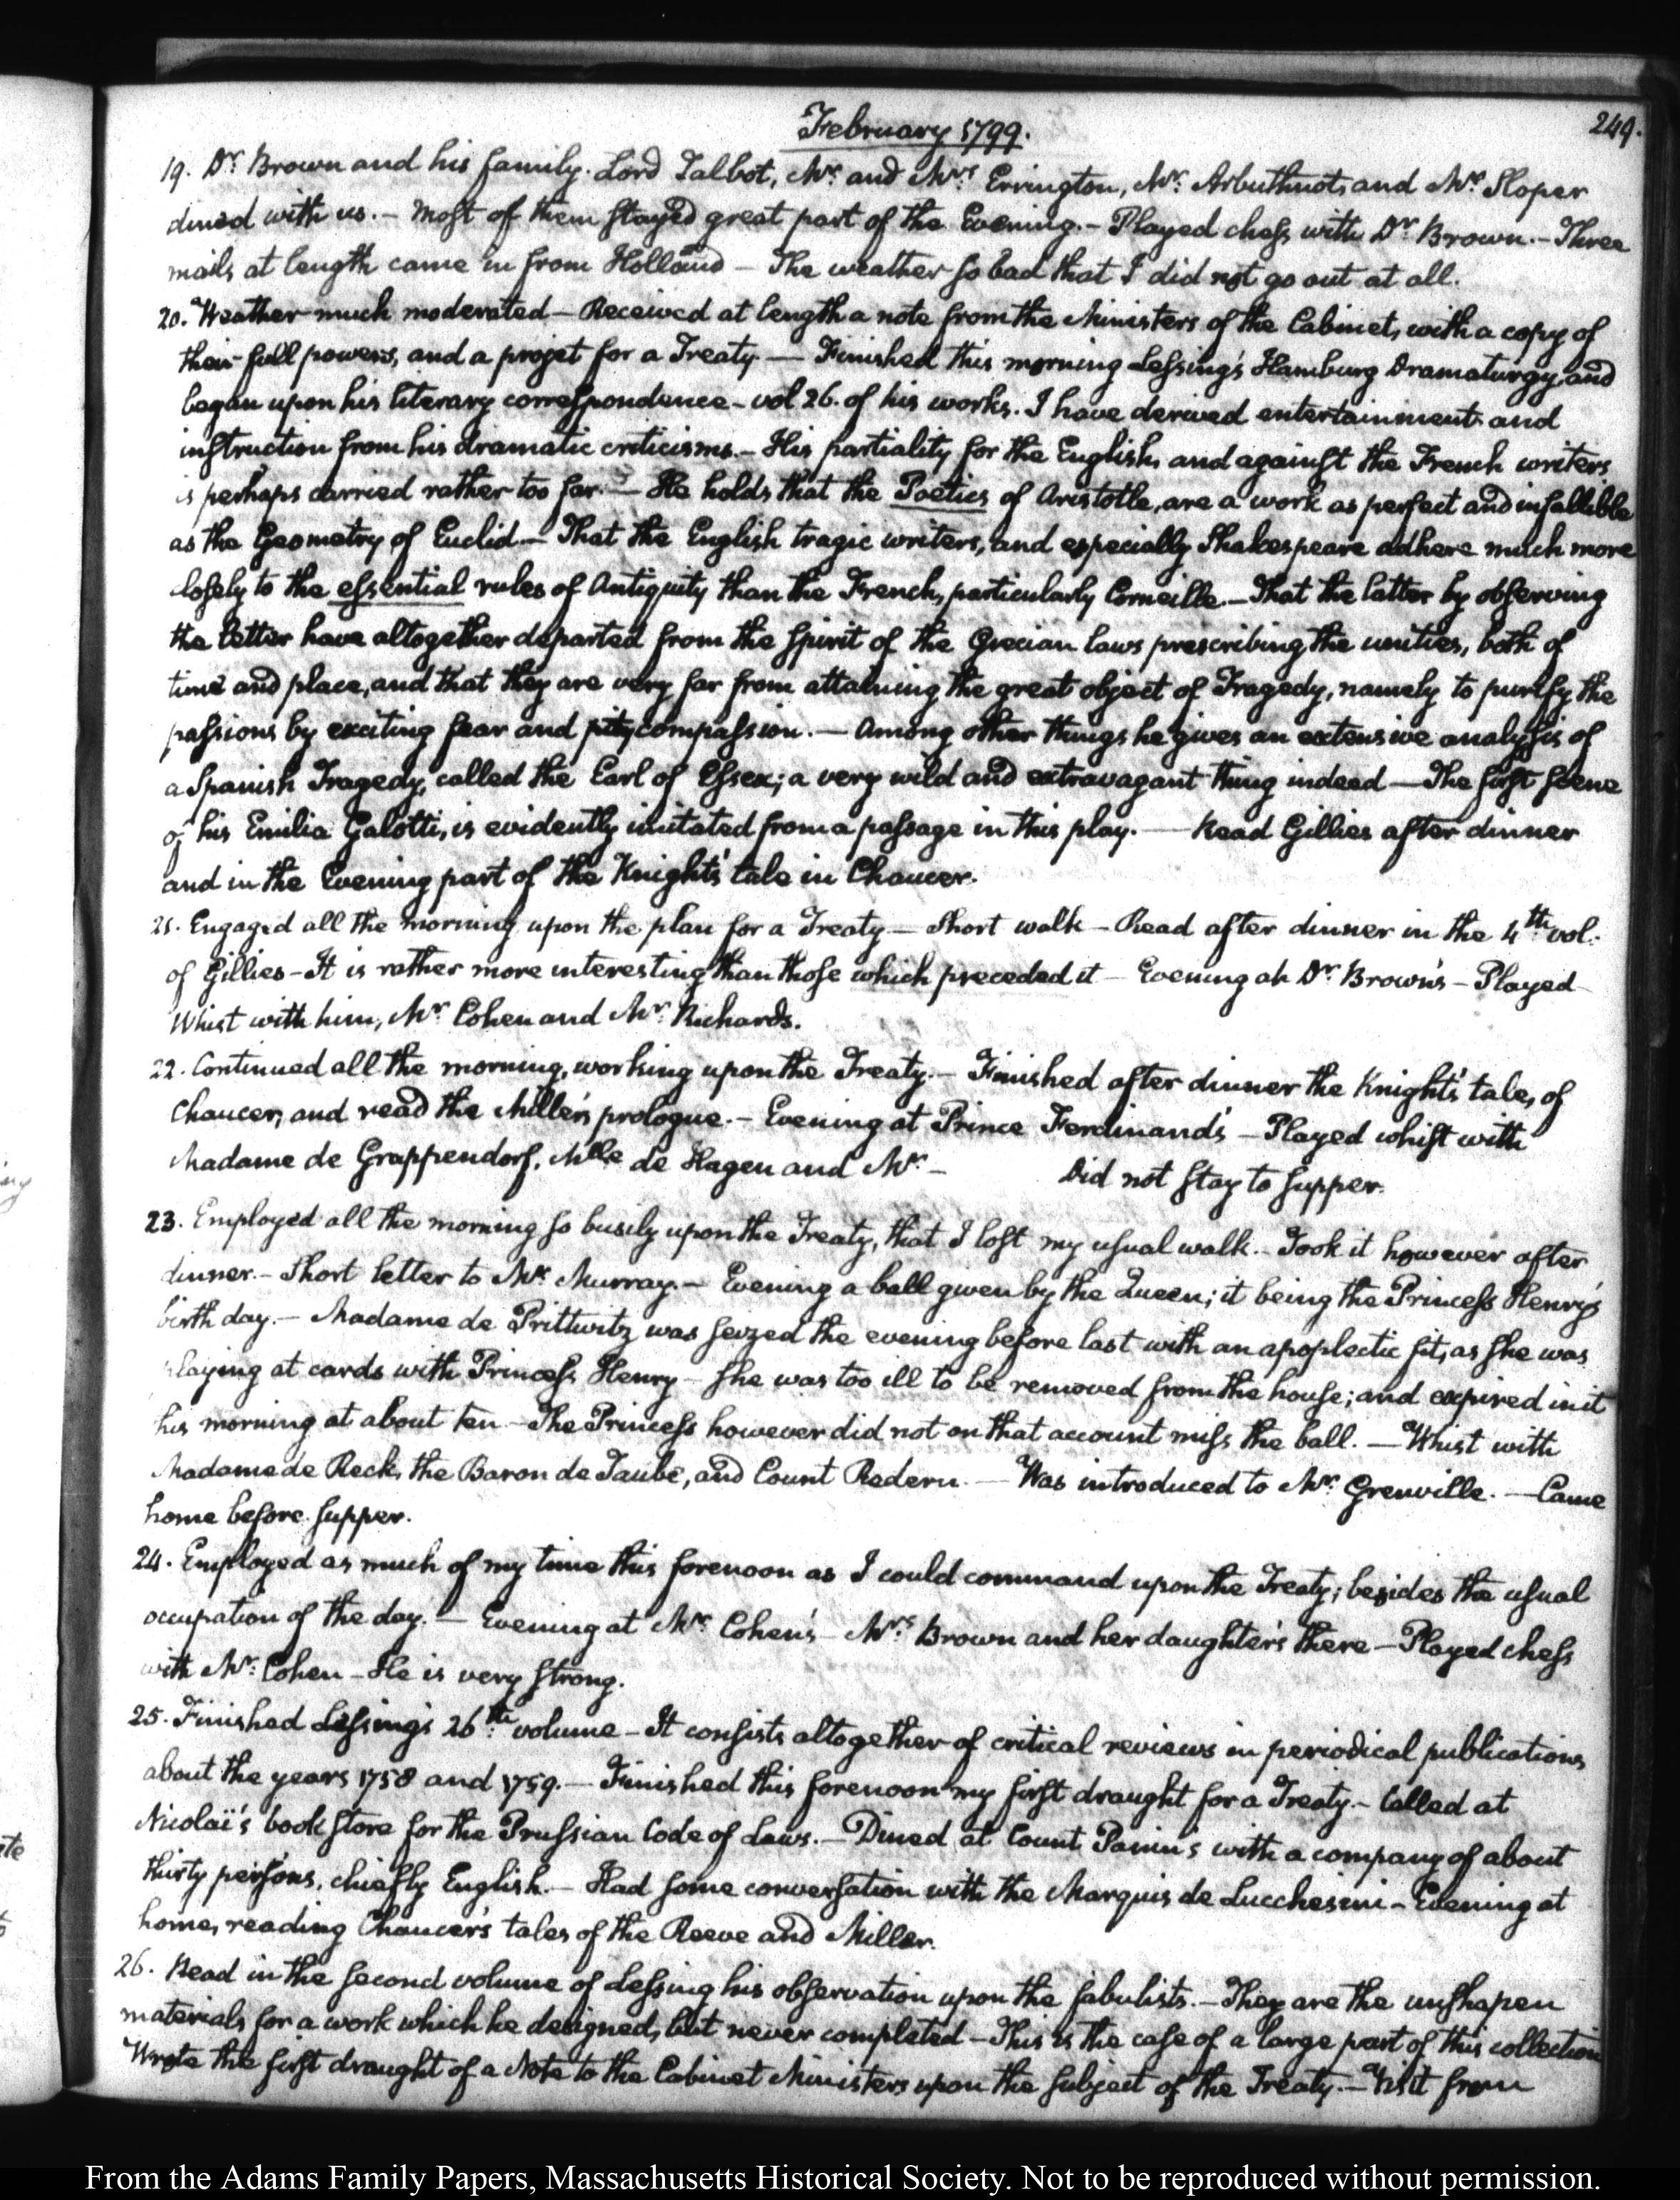 February 1799.
249.
19. Dr. Brown and his family. Lord Talbot, Mr. and Mrs. Errington, Mr. Arbuthnot, and Mr. Sloper
dined with us. – Most of them stayed great part of the Evening. – Played chess with Dr. Brown. – Three
mails at length came in from Holland – The weather so bad that I did not go out at all.
20. Weather much moderated – Received at length a note from the Ministers of the Cabinet, with a copy of
their full powers, and a projet for a Treaty – Finished this morning Lessing's Hamburg Dramaturgy, and
began upon his literary correspondence – vol 26. of his works. I have derived entertainment and
instruction from his dramatic criticisms. – His partiality for the English, and against the French writers
is perhaps carried rather too far. – He holds that the Poetics of Aristotle, are a work as perfect and infallible
as the Geometry of Euclid – That the English tragic writers, and especially Shakespeare adhere much more
closely to the essential rules of Antiquity than the French, particularly Corneille. – That the latter by observing
the letter have altogether departed from the spirit of the Grecian laws prescribing the unities, both of
time and place, and that they are very far from attaining the great object of Tragedy, namely to purify the
passions by exciting fear and pity compassion. – Among other things he gives an extensive analysis of
a Spanish Tragedy, called the Earl of Essex; a very wild and extravagant thing indeed – The first scene
of his Emilia Galotti, is evidently imitated from a passage in this play. – Read Gillies after dinner
and in the Evening part of the Knight's tale in Chaucer.
21. Engaged all the morning upon the plan for a Treaty – Short walk – Read after dinner in the 4th vol.
of Gillies – It is rather more interesting than those which preceded it – Evening at Dr. Brown's – Played
Whist with him, Mr. Cohen and Mr. Richards.
22. Continued all the morning, working upon the Treaty. – Finished after dinner the Knight's tale, of
Chaucer, and read the Miller's prologue. – Evening at Prince Ferdinand's – Played whist with
Madame de Grappendorf, Mlle de Hagen and Mr. – Did not stay to supper.
23. Employed all the morning so busily upon the Treaty, that I lost my usual walk. – Took it however after
dinner. – Short letter to Mr. Murray. – Evening a ball given by the Queen; it being the Princess Henry's
birth day. – Madame de Prittwitz was seized the evening before last with an apoplectic fit, as she was
playing at cards with Princess Henry – she was too ill to be removed from the house; and expired in it
this morning at about ten – The Princess however did not on that account miss the ball. – Whist with
Madame de Reck, the Baron de Taube, and Count Redern. – Was introduced to Mr. Grenville. – Came
home before supper.
24. Employed as much of my time this forenoon as I could command upon the Treaty; besides the usual
occupation of the day. – Evening at Mr. Cohen's – Mrs. Brown and her daughters there – Played chess
with Mr. Cohen – He is very strong.
25. Finished Lessing's 26th. volume – It consists altogether of critical reviews in periodical publications
about the years 1758 and 1759. – Finished this forenoon my first draught for a Treaty. – Called at
Nicolaï's book store for the Prussian Code of Laws. – Dined at Count Panin's with a company of about
thirty persons, chiefly English. – Had some conversation with the Marquis de Lucchesini – Evening at
home, reading Chaucer's tales of the Reeve and Miller.
26. Read in the second volume of Lessing his observation upon the fabulists. – They are the unshapen
materials for a work which he designed, but never completed – This is the case of a large part of this collection
Wrote the first draught of a Note to the Cabinet Ministers upon the subject of the Treaty. – Visit from
From the Adams Family Papers, Massachusetts Historical Society. Not to be reproduced without permission.